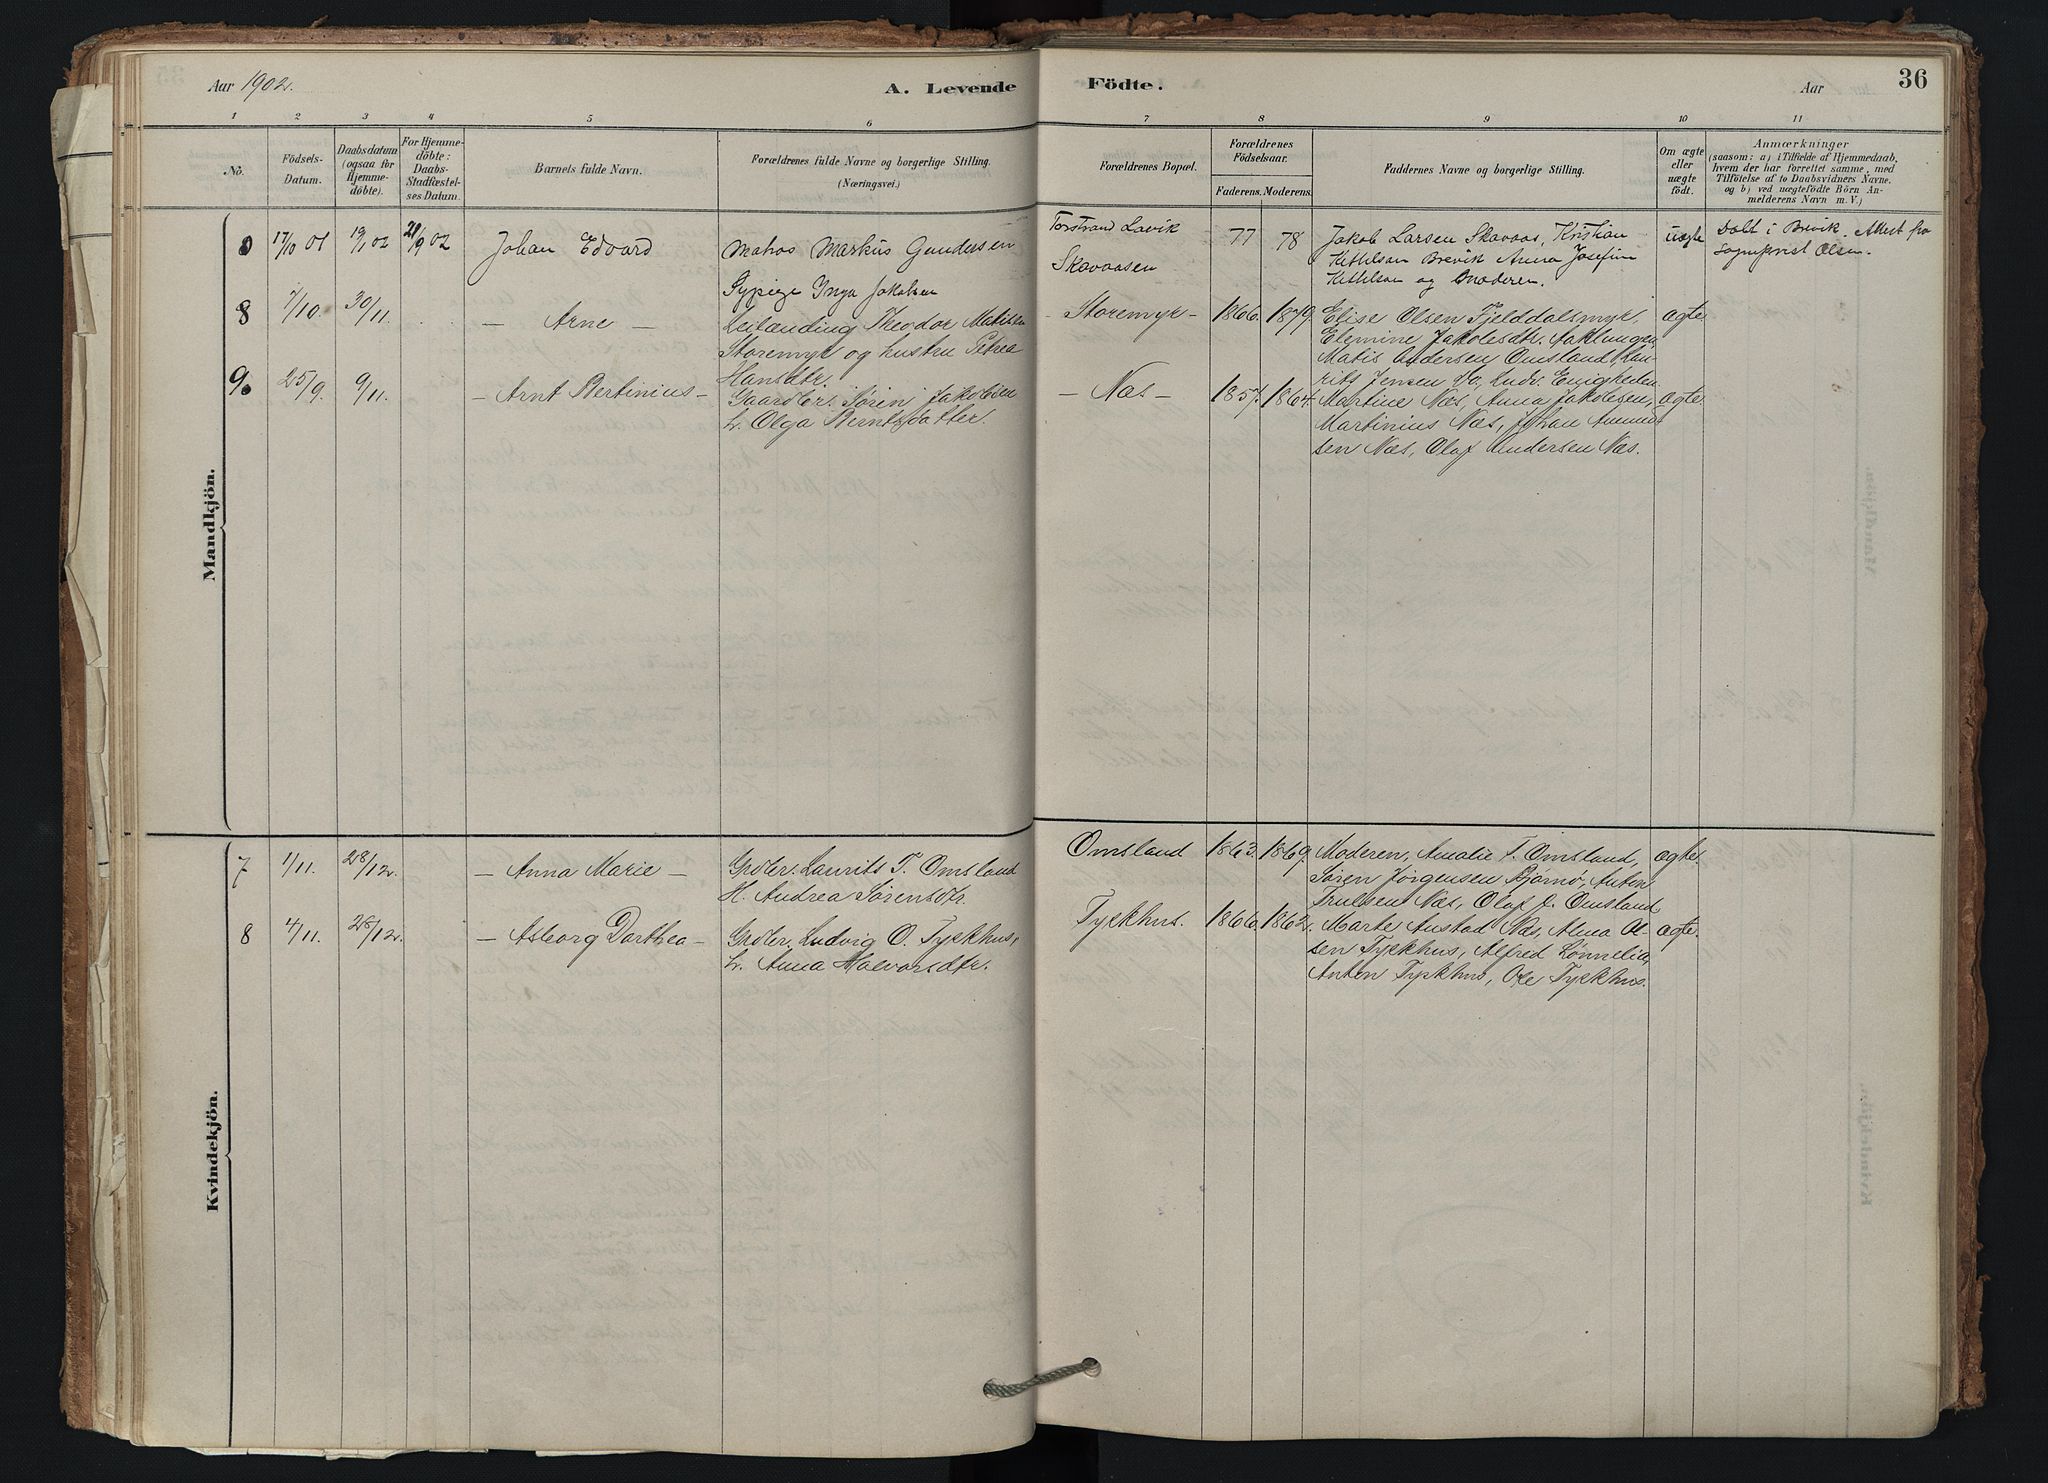 Aar 1902.
A. Levende
Födte.
Aar
36
1 2 3 4 5 6 7 8 9 10 11
No.
Födsels-
Datum.
Daabsdatum
(ogsaa for
Hjemme-
döbte).
For Hjemme-
döbte:
Daabs-
Stadfæstel-
ses Datum.
Barnets fulde Navn.
Forældrenes fulde Navne og borgerlige Stilling.
(Næringsvei.)
Forældrenes Bopæl.
Forældrenes
Födselsaar.
Faderens. Moderens.
Faddernes Navne og borgerlige Stilling.
Om ægte
eller
uægte
födt.
Anmærkninger
(saasom: a) i Tilfælde af Hjemmedaab,
hvem der har forrettet samme, med
Tilföielse af to Daabsvidners Navne,
og b) ved uægtefödte Börn An-
melderens Navn m. V.)
Mandkjön.
17/10 01 19/1 02 21/9 02 Johan Edvard
Matros Markus Gundersen
Sypige Inga Jakobsen
Torstrand Lavik
Skavaasen
77 78
Jakob Larsen Skavaas, Kristian
Kittilsen Brevik Anna Josefine
Kittilsen og Moderen.
uægte
Døbt i Brevik. Attest fra
Sognepræst Olsen.
8 7/10. 30/11. - Arne -
Leilænding Theodor Matisen
Storemyr og hustru Petrea
Hansdtr.
- Storemyr - 1866. 1879.
Elise Olsen Fjelddalsmyr,
Elemine Jakobsdtr. Aaklungen,
Matis Andersen Omsland, Lau-
rits Jensen do, Ludv. Enigheden
ægte
9 25/9. 9/11. - Arnt Bertinius -
Gaardbr. Søren Jakobsen
h. Olga Berntsdatter.
- Næs - 1857. 1864.
Martine Næs, Anna Jakobsen,
Martinius Næs, Johan Amund-
sen Næs, Olaf Andersen Næs.
ægte.
Kvindekjön.
7 1/11. 28/12. - Anna Marie -
Grdbr. Laurits T. Omsland
H. Andrea Sørensdtr.
Omsland 1863. 1869.
Moderen, Amalie T. Omsland,
Søren Jørgensen Bjørnø, Anton
Trulsen Næs, Olaf J. Omsland
ægte.
8 4/11. 28/12. - Asborg Dorthea -
Grdbr. Ludvig O. Tyskhus,
h. Anna Halvorsdtr.
Tyskhus. 1866. 1862.
Marte Austad Næs, Alma Ol-
sen Tyskhus, Alfred Lønnelia,
Anton Tyskhus, Ole Tyskhus.
ægte.